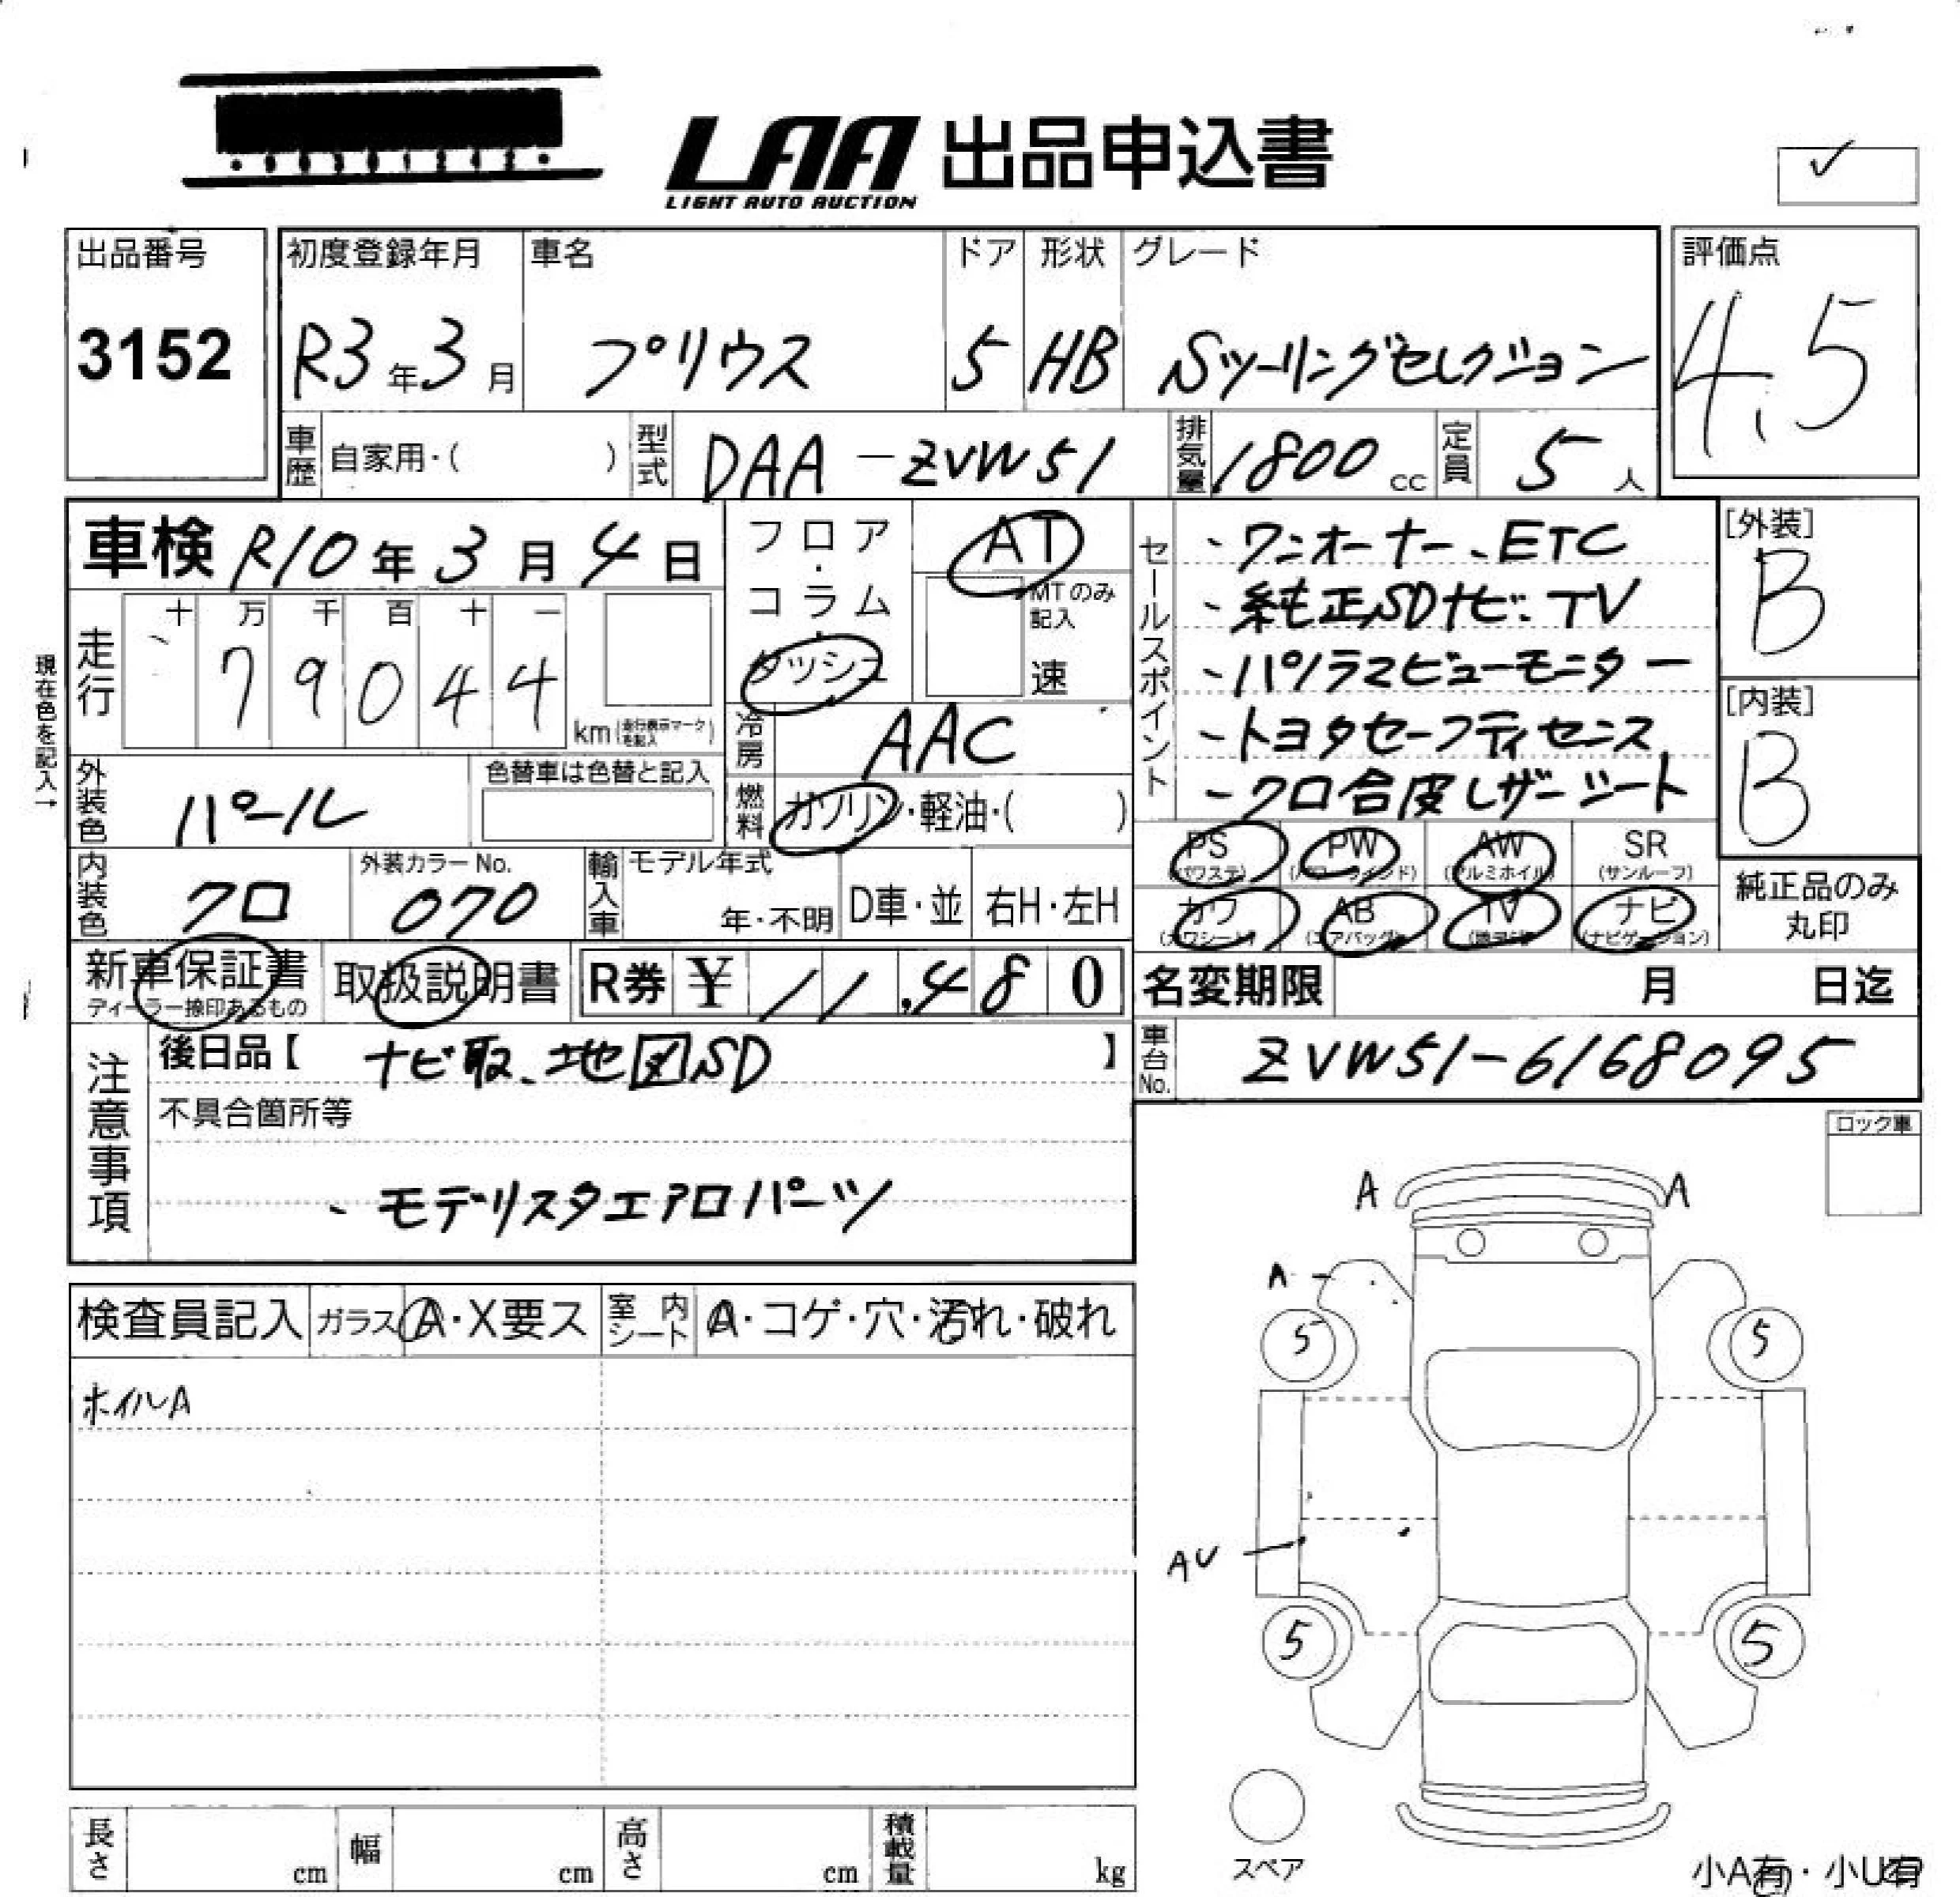 LAA 出品申込書
LIGHT AUTO AUCTION
出品番号
3152
初度登録年月 車名 ドア 形状 グレード
R3年3月 プリウス 5 HB Sツーリングセレクション
評価点
4.5
車歴 自家用・( ) 型式 DAA-ZVW51 排気量 1800cc 定員 5人
車検 R10年3月4日
フロア・コラム・ダッシュ
AT
MTのみ記入
速
セールスポイント
・ワンオーナー、ETC
・純正SDナビ、TV
・パノラマビューモニター
・トヨタセーフティセンス
・クロ合皮レザーシート
[外装]
B
[内装]
B
現在色を記入→
走行 十 万 千 百 十 一
79044
km(走行表示マークを記入)
冷房 AAC
外装色 パール
色替車は色替と記入
燃料 ガソリン・軽油・( )
内装色 クロ
外装カラーNo.
070
輸入車 モデル年式
年・不明 D車・並 右H・左H
PS(パワステ) PW(パワーウインド) AW(アルミホイル) SR(サンルーフ)
カワ(カワシート) AB(エアバッグ) TV ナビ(ナビゲーション)
純正品のみ
丸印
新車保証書
ディーラー捺印あるもの
取扱説明書
R券 ¥ 11,480
名変期限 月 日迄
車台No. ZVW51-6168095
注意事項
後日品【 ナビ取、地図SD 】
不具合箇所等
・モデリスタエアロパーツ
ロック車
検査員記入 ガラス A・X要ス 室内シート A・コゲ・穴・汚れ・破れ
ホイルA
A A
A
5 5
AU
5 5
スペア
長さ cm 幅 cm 高さ cm 積載量 kg
小A有・小U有